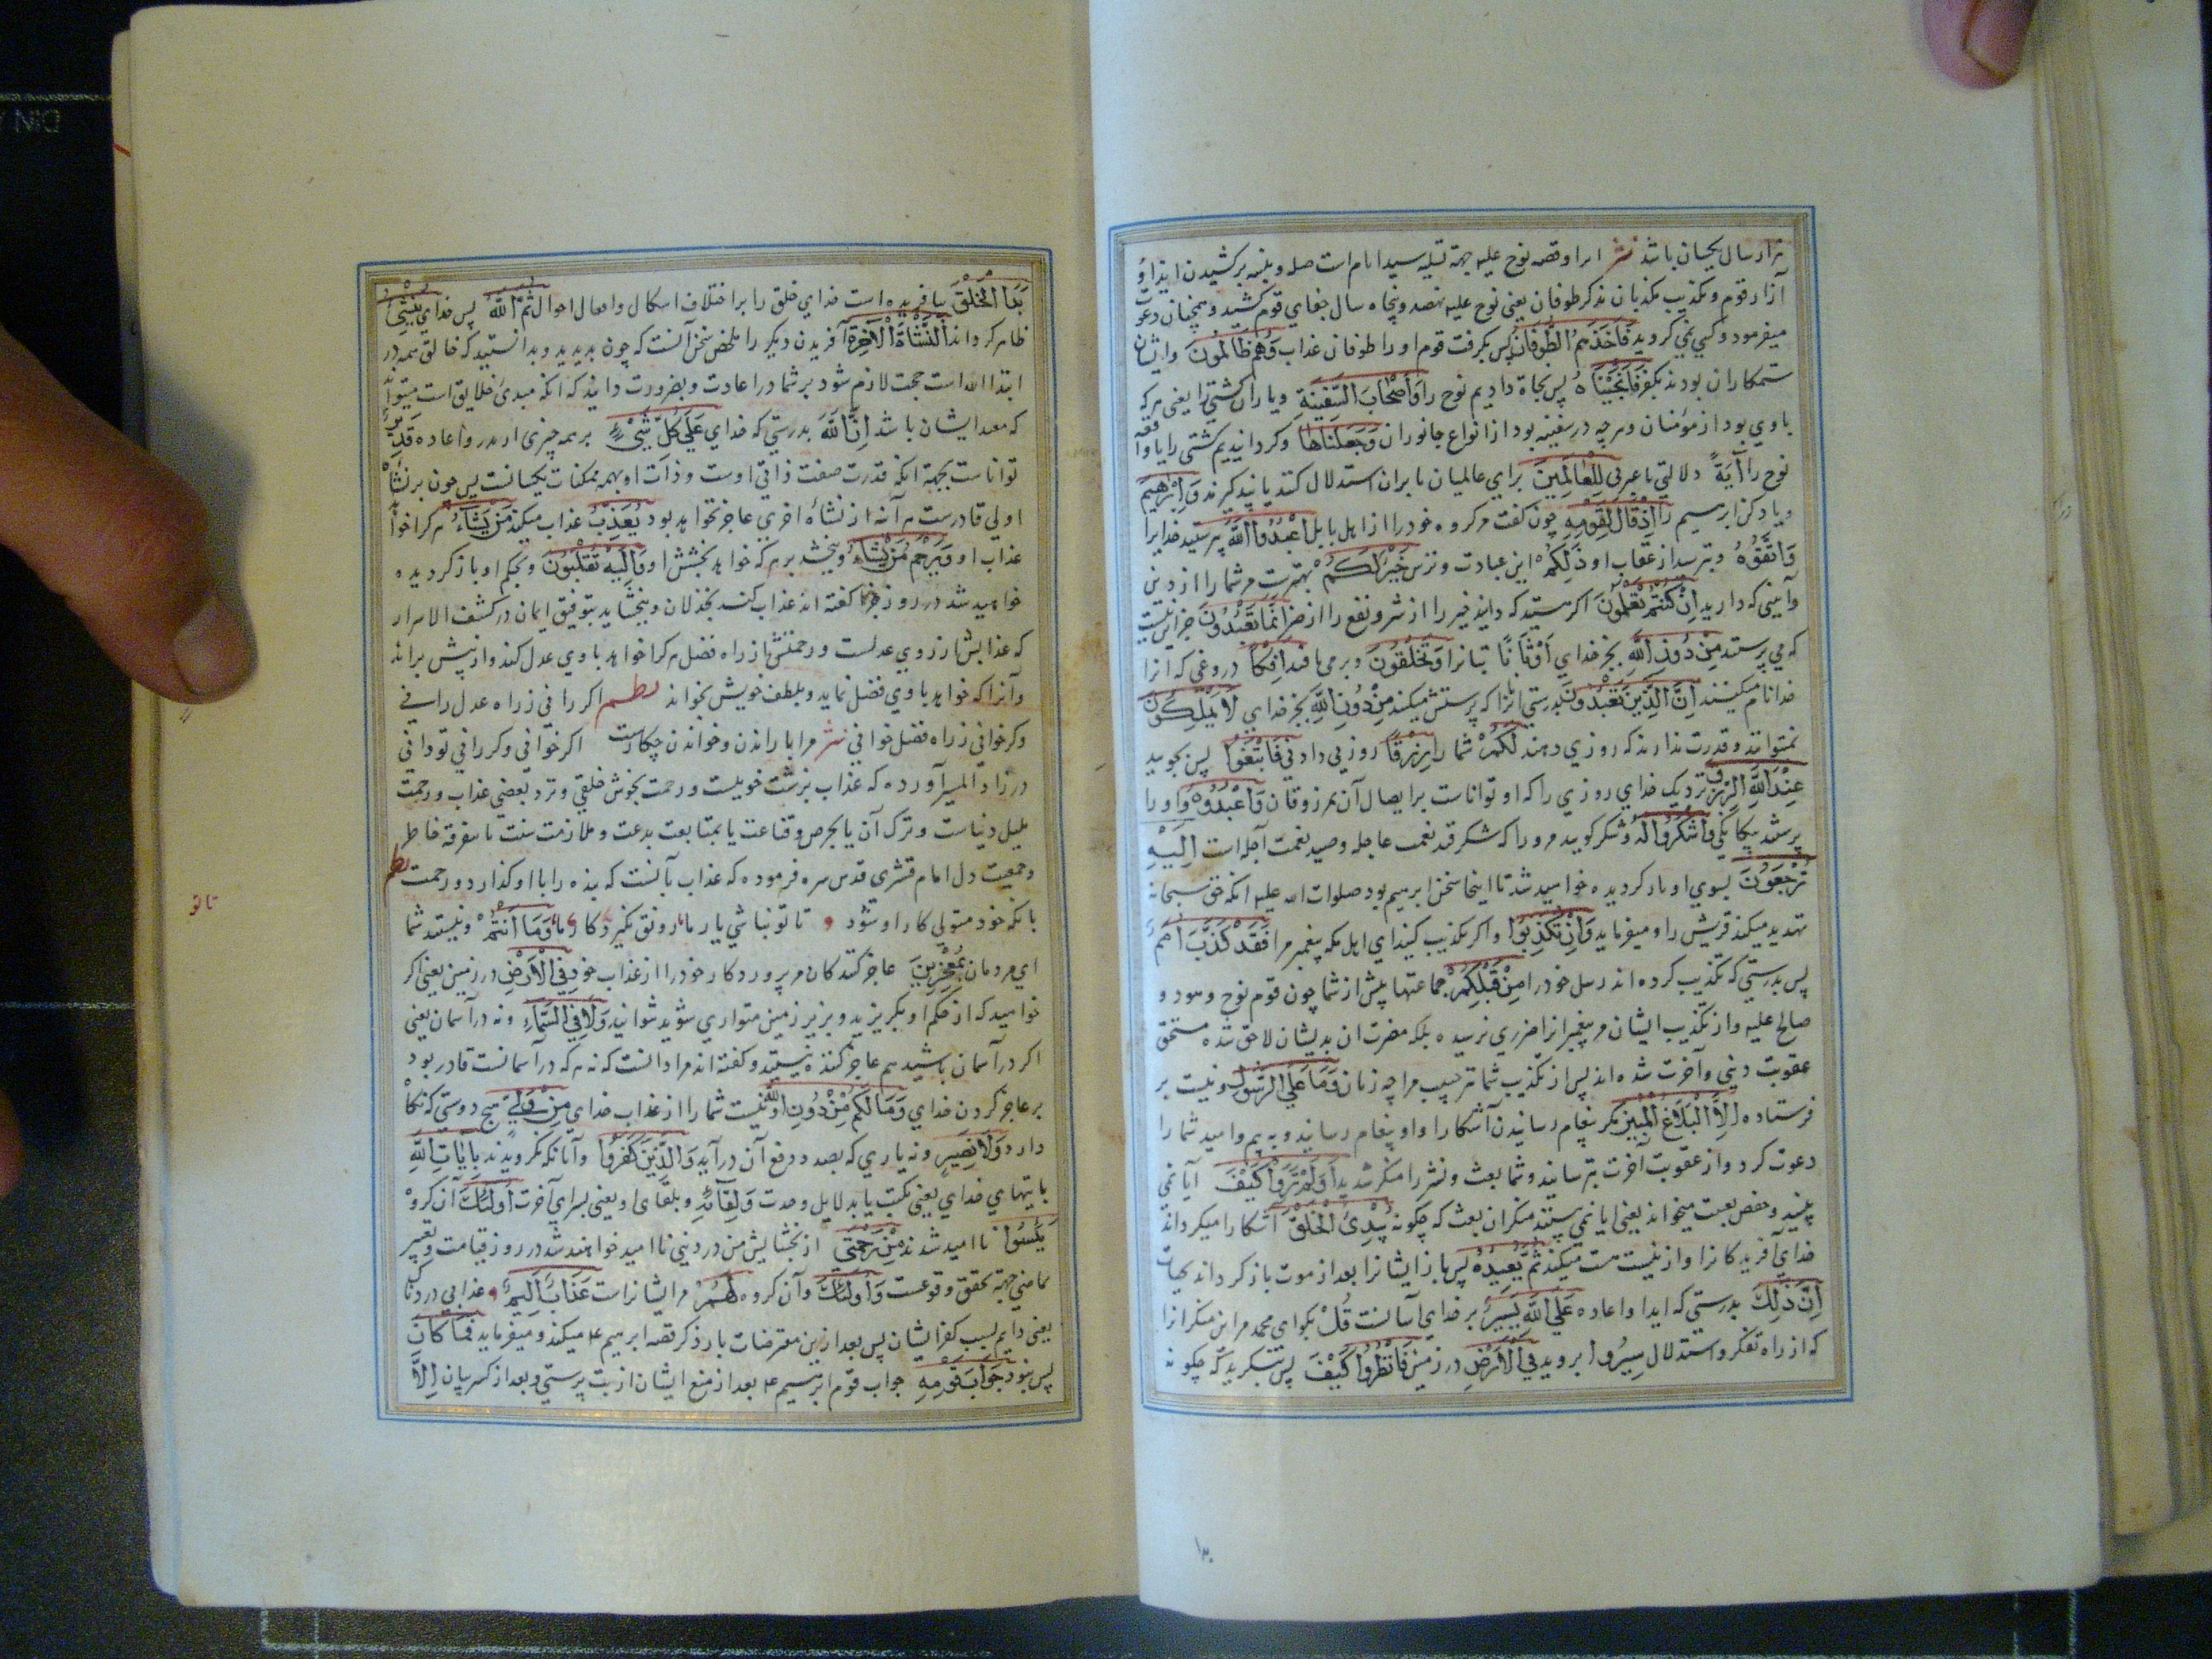 هزار سال یکسان باشد نثر ایراد قصه نوح علیه جهة تسلیه سید انام است صلعم و بلیه برکشیدن ایذا و
آزار قوم و تکذیب مکذبان بذکر طوفان یعنی نوح علیه نهصد و پنجاه سال جفای قوم کشید و همچنان دعوت
میفرمود و کسی نمی کروید فَأَخَذَهُمُ الطُّوفَانُ پس بکرفت قوم او را طوفان عذاب وَهُمْ ظَالِمُونَ و ایشان
ستمکاران بودند بکفر فَأَنْجَيْنَاهُ پس نجاة دادیم نوح را وَأَصْحَابَ السَّفِينَةِ و یاران کشتی را یعنی هر که
با وی بود از مؤمنان و هر چه در سفینه بود از انواع جانوران وَجَعَلْنَاهَا و کردانیدیم کشتی را یا واقعه
نوح را آيَةً دلالتی یا عبرتی لِلْعَالَمِينَ برای عالمیان تا بران استدلال کنند یا پند کیرند وَإِبْرَاهِيمَ
و یاد کن ابرهیم را إِذْ قَالَ لِقَوْمِهِ چون کفت مر کروه خود را از اهل بابل اعْبُدُوا اللَّهَ پرستید خدایرا
وَاتَّقُوهُ و بترسید از عقاب او ذَلِكُمْ این عبادت و ترس خَيْرٌ لَكُمْ بهترست مر شما را از دینی
و آیینی که دارید إِنْ كُنْتُمْ تَعْلَمُونَ اکر هستید که دانید خیر را از شر و نفع را از ضر إِنَّمَا تَعْبُدُونَ جز این نیست
که می پرستید مِنْ دُونِ اللَّهِ بجز خدای أَوْثَانًا بتانرا وَتَخْلُقُونَ و بر می بافید إِفْكًا دروغی که انرا
خدا نام میکنید إِنَّ الَّذِينَ تَعْبُدُونَ بدرستی انانرا که پرستش میکنید مِنْ دُونِ اللَّهِ بجز خدای لَا يَمْلِكُونَ
نمیتوانند و قدرت ندارند که روزی دهند لَكُمْ شما را رِزْقًا روزیی دادنی فَابْتَغُوا پس بجویید
عِنْدَ اللَّهِ الرِّزْقَ نزدیک خدای روزی را که او تواناست بر ایصال آن بمرزوقان وَاعْبُدُوهُ و او را
پرستید بیکانکی وَاشْكُرُوا لَهُ و شکر کویید مر ورا که شکر قید نعمت عاجله و صید نعمت آجله است إِلَيْهِ
تُرْجَعُونَ بسوی او باز کردیده خواهید شد تا اینجا سخن ابرهیم بود صلوات الله علیه انکه حق سبحانه
تهدید میکند قریش را و میفرماید وَإِنْ تُكَذِّبُوا و اکر تکذیب کنید ای اهل مکه پیغمبر مرا فَقَدْ كَذَّبَ أُمَمٌ
پس بدرستی که تکذیب کرده اند رسل خود را مِنْ قَبْلِكُمْ جماعتها پیش از شما چون قوم نوح و هود و
صالح علیه و از تکذیب ایشان مر پیغمبرانرا ضرری نرسیده بلکه مضرت ان بدیشان لاحق شده مستحق
عقوبت دنیی و آخرت شده اند پس از تکذیب شما نیز حبیب مرا چه زیان وَمَا عَلَى الرَّسُولِ و نیست بر
فرستاده إِلَّا الْبَلَاغُ الْمُبِينُ مکر پیغام رسانیدن آشکارا و او پیغام رسانید و به بیم و امید شما را
دعوت کرد و از عقوبت آخرت بترسانید و شما بعث و نشر را منکر شدید أَوَلَمْ تَرَوْا كَيْفَ آیا نمی
بینید و حفص بغیبت میخواند یعنی ایا نمی بینند منکران بعث که چکونه يُبْدِئُ الْخَلْقَ آشکارا میکرداند
خدای آفریدکانرا و از نیست هست میکند ثُمَّ يُعِيدُهُ پس باز ایشانرا بعد از موت باز کرداند بحیات
إِنَّ ذَلِكَ بدرستی که ابدا و اعاده عَلَى اللَّهِ يَسِيرٌ بر خدای آسانست قُلْ بکو ای محمد مر این منکرانرا
که از راه تفکر و استدلال سِيرُوا بروید فِي الْأَرْضِ در زمین فَانْظُرُوا كَيْفَ پس بنکرید که چکونه
بدا
بَدَأَ الْخَلْقَ بیافریده است خدای خلق را بر اختلاف اشکال و افعال احوال ثُمَّ اللَّهُ پس خدای يُنْشِئُ
ظاهر کرداند النَّشْأَةَ الْآخِرَةَ آفریدن دیکر را ملخص سخن آنست که چون بدیدید و بدانستید که خالق همه در
ابتدا الله است حجت لازم شود بر شما در اعادت و بضرورت دانید که انکه مبدئ خلایق است میتواند
که معید ایشان باشد إِنَّ اللَّهَ بدرستی که خدای عَلَى كُلِّ شَيْءٍ بر همه چیزی از بدو و اعاده قَدِيرٌ
تواناست بجهة انکه قدرت صفت ذاتی اوست و ذات او بهمه ممکنات یکسانست پس چون بر نشأ
اولی قادرست هر آینه از نشأه اخری عاجز نخواهد بود يُعَذِّبُ عذاب میکند مَنْ يَشَاءُ هر کرا خواهد
عذاب او وَيَرْحَمُ مَنْ يَشَاءُ و ببخشد بر هر که خواهد بخشش او وَإِلَيْهِ تُقْلَبُونَ و بحکم او باز کردیده
خواهید شد در روز جزا کفته اند عذاب کند بخذلان و ببخشاید بتوفیق ایمان در کشف الاسرار
که عذابش از روی عدلست و رحمتش از راه فضل هر کرا خواهد با وی عدل کند و از پیش براند
و آنرا که خواهد با وی فضل نماید و بلطف خویش بخواند نظم اکر رانی ز راه عدل رانی
وکر خوانی ز راه فضل خوانی نثر مرا با راندن و خواندن چکارست اکر خوانی وکر رانی تو دانی
در زاد المسیر آورده که عذاب بزشت خوییست و رحمت بخوش خلقی و نزد بعضی عذاب و رحمت
بمیل دنیاست و ترک آن یا بحرص و قناعت یا بمتابعت بدعت و ملازمت سنت یا بتفرقه خاطر
و جمعیت دل امام قشری قدس سره فرموده که عذاب بآنست که بنده را باو کذارد و رحمت نظم
بانکه خود متولی کار او شود تا تو نباشی یار ما رونق نکیرد کار ما وَمَا أَنْتُمْ و نیستید شما
ای مردمان بِمُعْجِزِينَ عاجز کنندکان مر پروردکار خود را از عذاب خود فِي الْأَرْضِ در زمین یعنی اکر
خواهید که از حکم او بکریزید و بزیر زمین متواری شوید نتوانید وَلَا فِي السَّمَاءِ و نه در آسمان یعنی
اکر در آسمان باشید هم عاجز کننده نیستید و کفته اند مراد انست که نه هر که در آسمانست قادر بود
بر عاجز کردن خدای وَمَا لَكُمْ مِنْ دُونِ اللَّهِ و نیست شما را از عذاب خدای مِنْ وَلِيٍّ هیچ دوستی که نکاه
دارد وَلَا نَصِيرٍ و نه یاری که بصدد دفع آن درآید وَالَّذِينَ كَفَرُوا و آنانکه نکرویدند بِآيَاتِ اللَّهِ
بایتهای خدای یعنی بکتب یا بدلایل وحدت وَلِقَائِهِ و بلقای او یعنی بسرای آخرت أُولَئِكَ آن کروه
يَئِسُوا نا امید شدند مِنْ رَحْمَتِي از بخشایش من در دنیی نا امید خواهند شد در روز قیامت و تعبیر
بماضی جهة تحقق وقوعست وَأُولَئِكَ و آن کروه لَهُمْ مر ایشانراست عَذَابٌ أَلِيمٌ عذابی دردناک
یعنی دایم بسبب کفر ایشان پس بعد ازین معترضات باز ذکر قصه ابرهیم ع میکند و میفرماید فَمَا كَانَ
پس نبود جَوَابَ قَوْمِهِ جواب قوم ابرهیم ع بعد از منع ایشان از بت پرستی و بعد از کسر بتان إِلَّا
تا تو